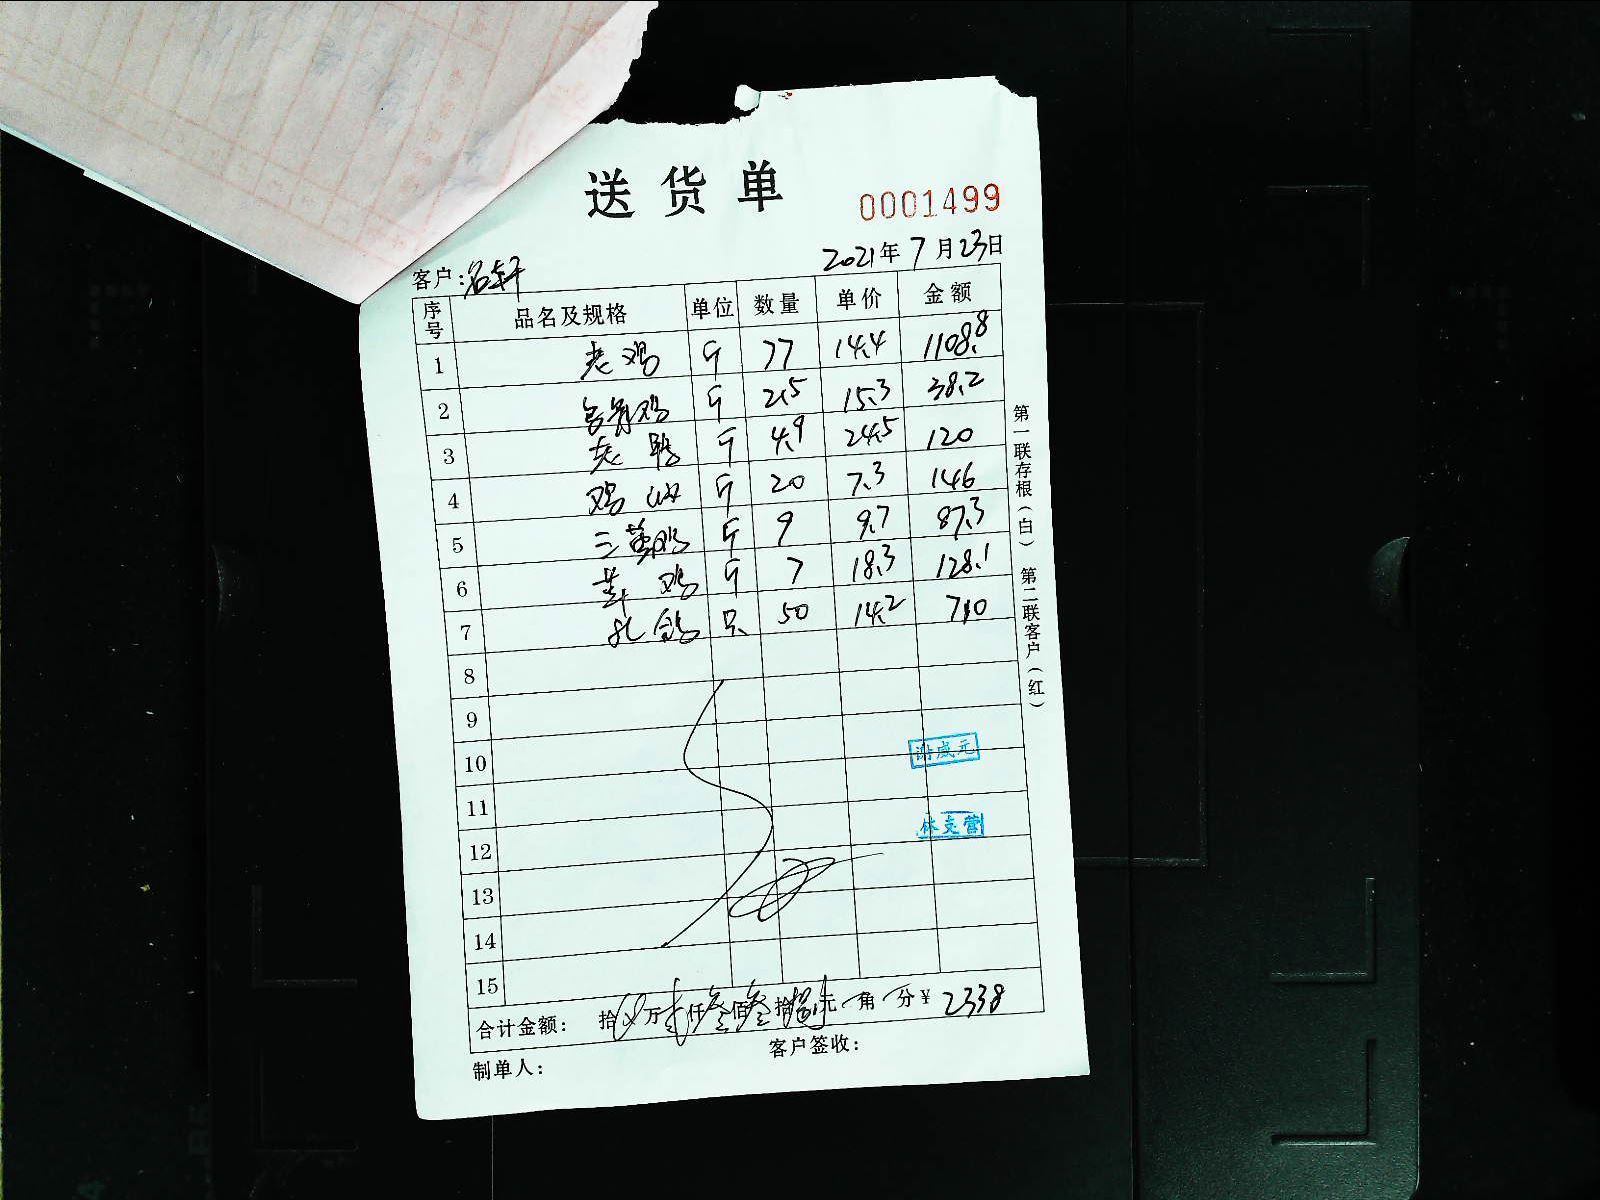 送货单
0001499
2021年7月23日
客户：名轩
序号 品名及规格 单位 数量 单价 金额
1 老鸡 斤 77 14.4 1108.8
2 乌骨鸡 斤 2.5 15.3 38.2
3 老鸭 斤 4.9 24.5 120
4 鸡 斤 20 7.3 146
5 三黄鸡 斤 9 9.7 87.3
6 草鸡 斤 7 18.3 128.1
7 乳鸽 只 50 14.2 710
8
9
10
11
12
13
14
15
合计金额： 拾 万贰仟叁佰叁拾捌元 角 分¥ 2338
制单人：
客户签收：
第一联存根（白） 第二联客户（红）
谢成元
林支营